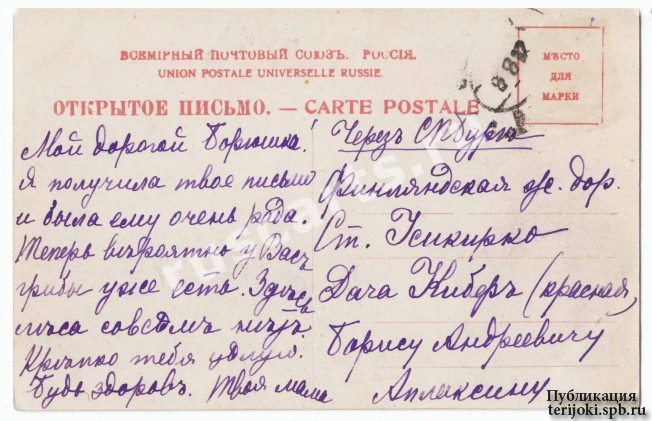 ВСЕМІРНЫЙ ПОЧТОВЫЙ СОЮЗЪ. РОССІЯ.
UNION POSTALE UNIVERSELLE RUSSIE.
ОТКРЫТОЕ ПИСЬМО. — CARTE POSTALE
МѢСТО
ДЛЯ
МАРКИ
Мой дорогой Борюшка!
Я получила твое письмо
и была ему очень рада.
Теперь вѣроятно у Васъ
грибы уже есть. Здѣсь
лѣса совсѣмъ нѣтъ.
Крѣпко тебя цѣлую.
Будь здоровъ. Твоя мама
Черезъ СПбургъ
Финляндская ж. дор.
Ст. Усикирко
Дача Киберъ (красная)
Борису Андреевичу
Апляксину
Публикация
terijoki.spb.ru